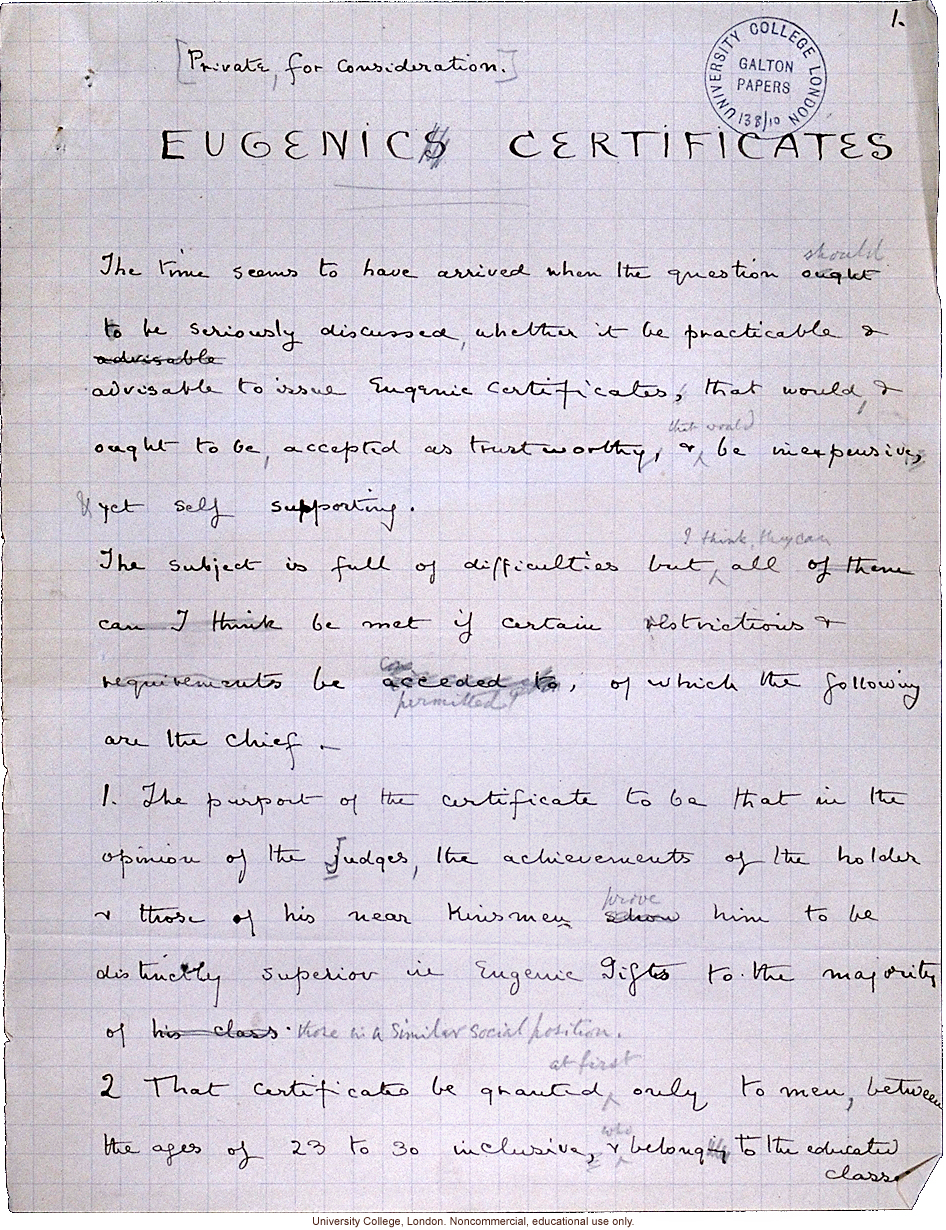 1.
[Private, for consideration.]
UNIVERSITY COLLEGE LONDON
GALTON
PAPERS
138/10
EUGENICS CERTIFICATES
should
The time seems to have arrived when the question ought
to be seriously discussed, whether it be practicable &
advisable
advisable to issue Eugenic Certificates, that would, &
that would
ought to be, accepted as trustworthy, & be inexpensive,
& yet self supporting.
I think, they can
The subject is full of difficulties but all of them
can I think be met if certain restrictions &
requirements be acceded to, of which the following
permitted
are the chief –
1. The purport of the certificate to be that in the
opinion of the Judges, the achievements of the holder
prove
& those of his near Kinsmen show him to be
distinctly superior in Eugenic Gifts to the majority
of his class. those in a similar social position.
at first
2 That certificates be granted only to men, between
who
the ages of 23 to 30 inclusive, & belonging to the educated
classes
University College, London. Noncommercial, educational use only.